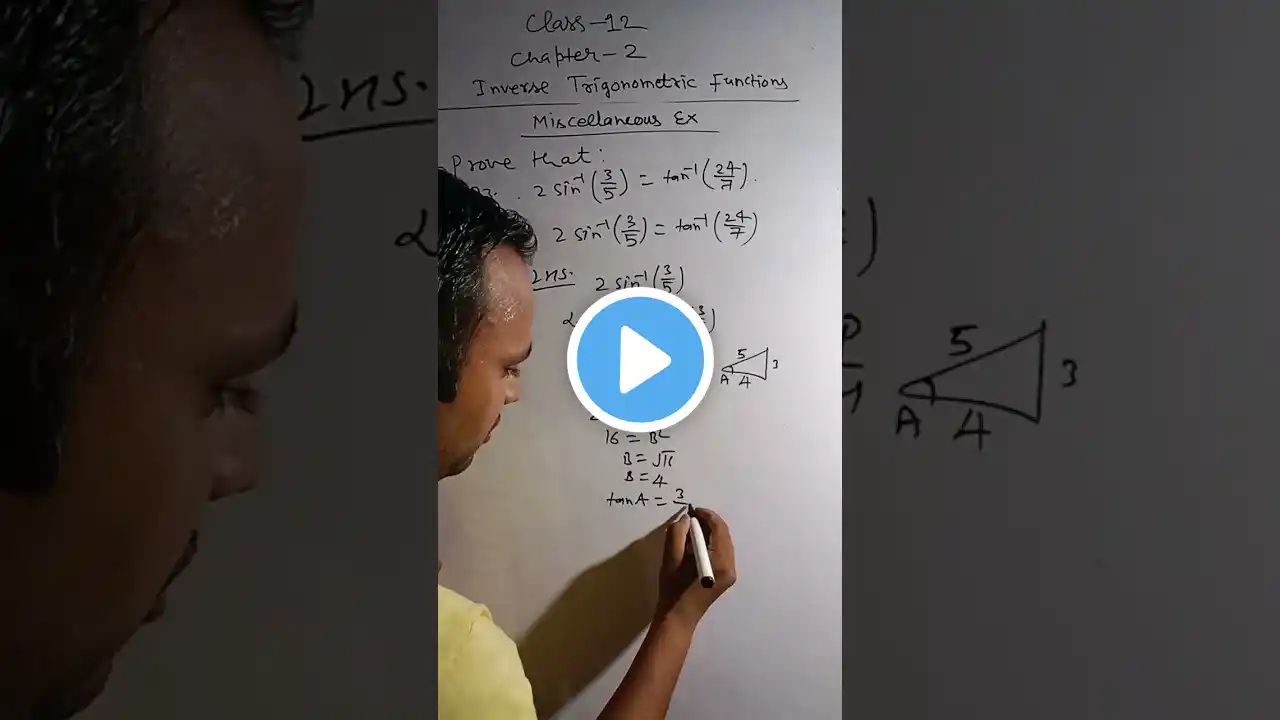 Class-12
Chapter-2
Inverse Trigonometric Functions
Miscellaneous Ex
Prove that:
2 sin⁻¹(3/5) = tan⁻¹(24/7).
2 sin⁻¹(3/5) = tan⁻¹(24/7)
2 sin⁻¹(3/5)
5
3
A 4
16 = B²
B = 4
tanA = 3
5
3
A 4